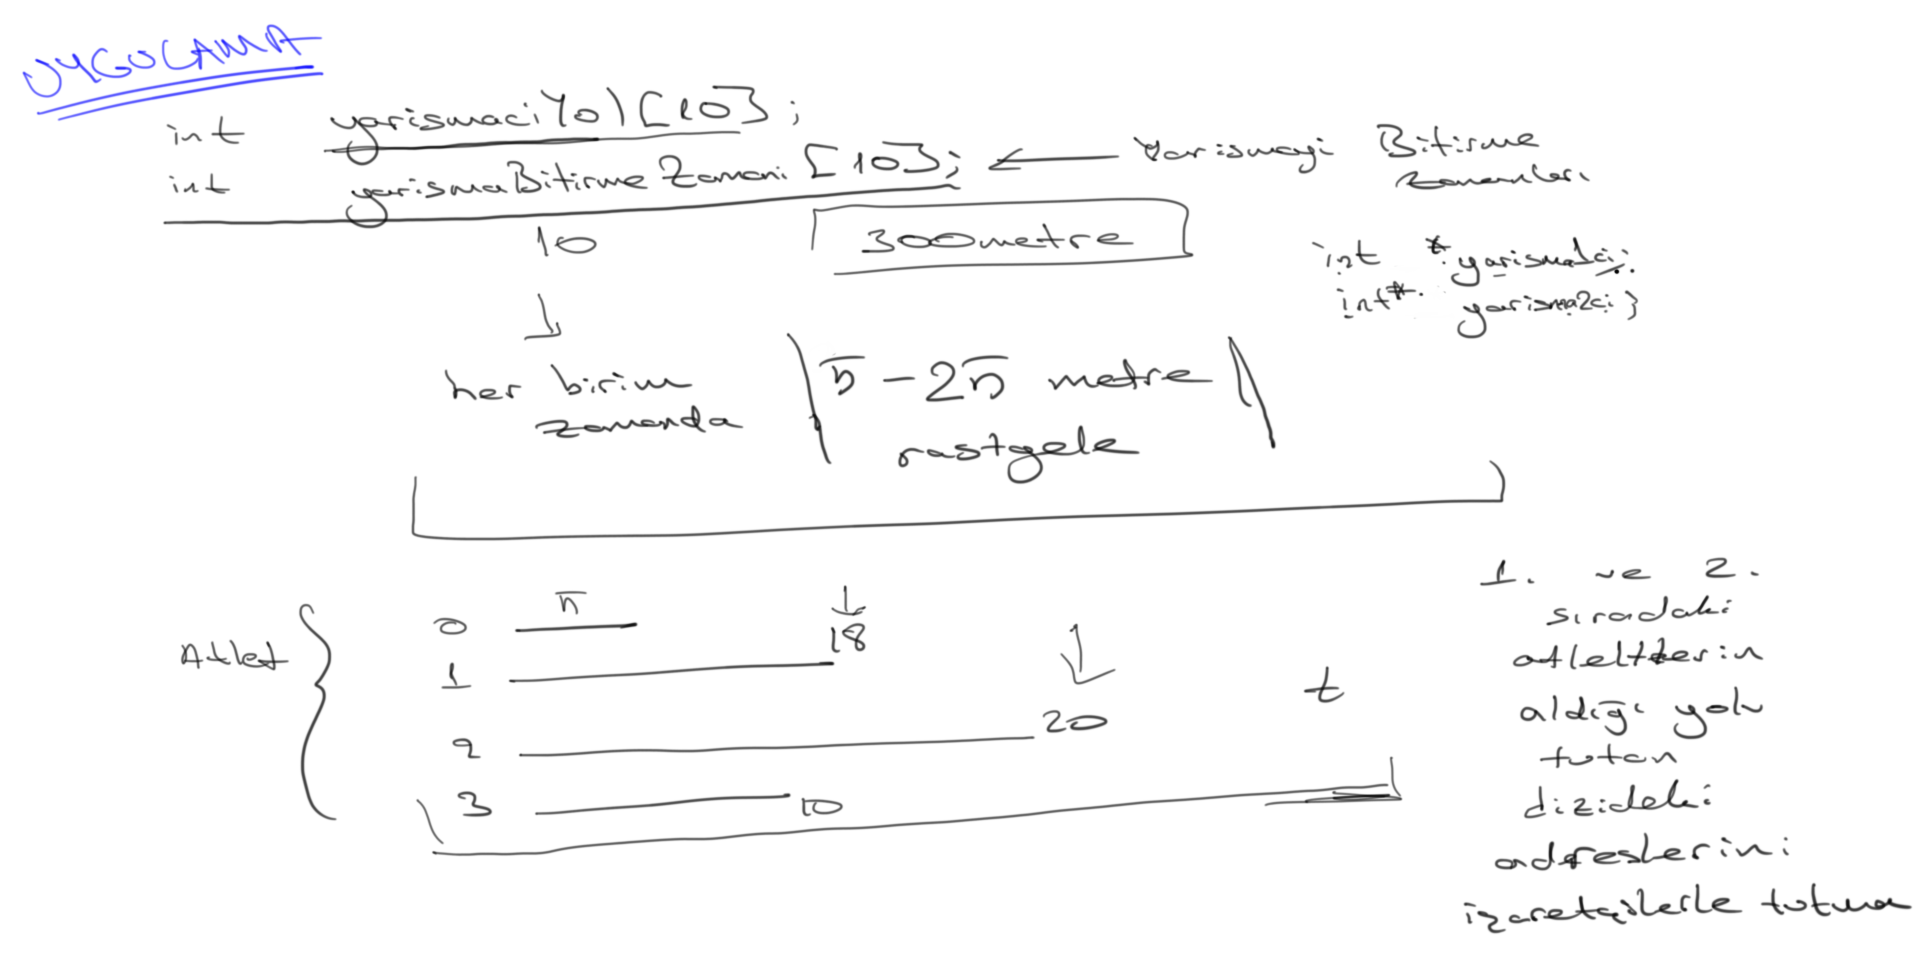 UYGULAMA
int yarismaciYol[10];
int yarismaBitirmeZamani[10]; ← Yarismayi Bitirme
Zamanları
10
300metre
int *yarisma1ci;
int* yarisma2ci;
her birim
zamanda
n - 2n metre
rastgele
Atlet
0 n
18
1
2 20
t
3 10
1. ve 2.
sıradaki
atletlerin
aldığı yolu
tutan
dizideki
adreslerini
işaretçilerle tutma